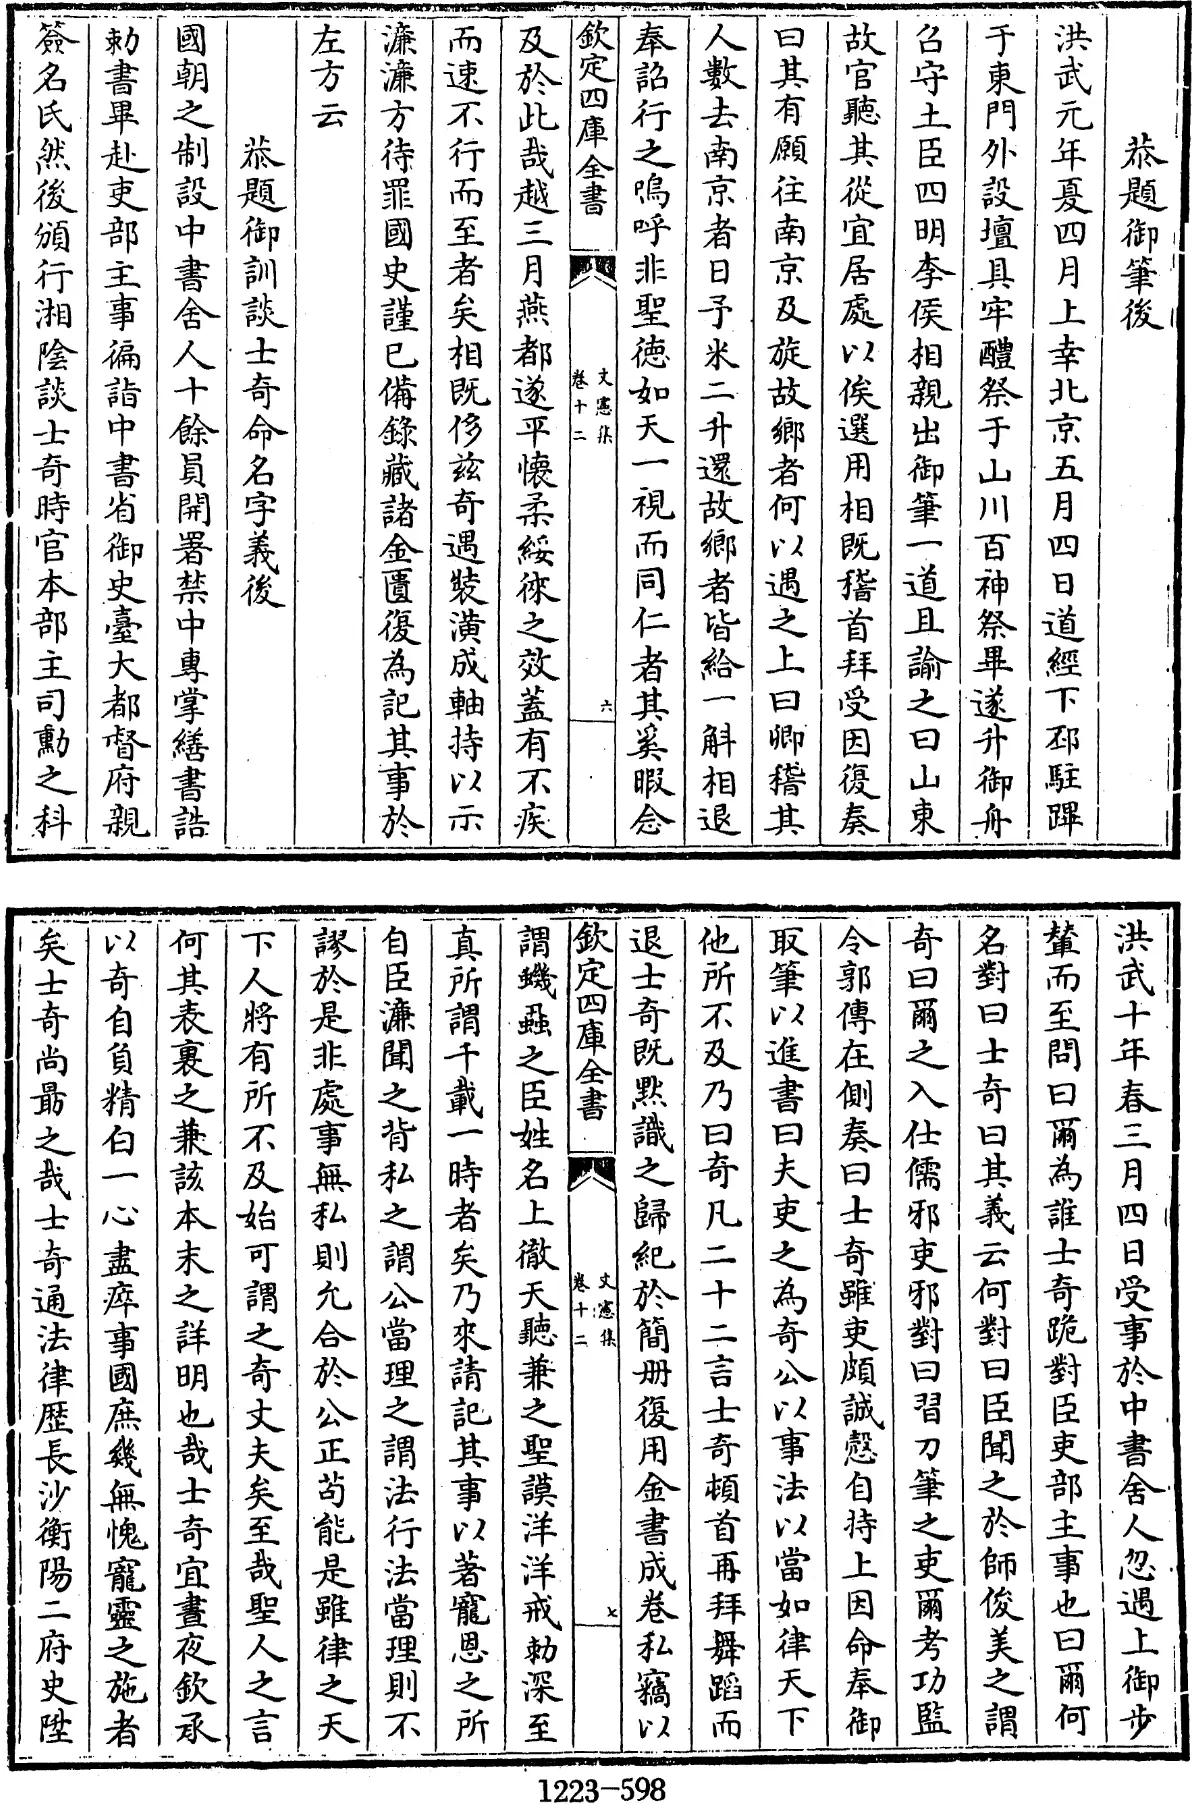 恭題御筆後
洪武元年夏四月上幸北京五月四日道經下邳駐蹕
于東門外設壇具牢醴祭于山川百神祭畢遂升御舟
召守土臣四明李侯相親出御筆一道且諭之曰山東
故官聽其從宜居處以俟選用相既稽首拜受因復奏
曰其有願往南京及旋故鄉者何以遇之上曰卿稽其
人數去南京者日予米二升還故鄉者皆給一斛相退
奉詔行之嗚呼非聖徳如天一視而同仁者其奚暇念
欽定四庫全書
文憲集
卷十二
六
及於此哉越三月燕都遂平懐柔綏徠之效蓋有不疾
而速不行而至者矣相既侈兹奇遇裝潢成軸持以示
濂濂方待罪國史謹已備錄藏諸金匱復為記其事於
左方云
恭題御訓談士奇命名字義後
國朝之制設中書舍人十餘員開署禁中專掌繕書誥
勅書畢赴吏部主事徧詣中書省御史臺大都督府親
簽名氏然後頒行湘陰談士奇時官本部主司勳之科
洪武十年春三月四日受事於中書舍人忽遇上御步
輦而至問曰爾為誰士奇跪對臣吏部主事也曰爾何
名對曰士奇曰其義云何對曰臣聞之於師俊美之謂
奇曰爾之入仕儒邪吏邪對曰習刀筆之吏爾考功監
令郭傳在側奏曰士奇雖吏頗誠慤自持上因命奉御
取筆以進書曰夫吏之為奇公以事法以當如律天下
他所不及乃曰奇凡二十二言士奇頓首再拜舞蹈而
退士奇既黙識之歸紀於簡冊復用金書成卷私竊以
欽定四庫全書
文憲集
卷十二
七
謂蟣蝨之臣姓名上徹天聽兼之聖謨洋洋戒勅深至
真所謂千載一時者矣乃來請記其事以著寵恩之所
自臣濂聞之背私之謂公當理之謂法行法當理則不
謬於是非處事無私則允合於公正苟能是雖律之天
下人將有所不及始可謂之奇丈夫矣至哉聖人之言
何其表裏之兼該本末之詳明也哉士奇宜晝夜欽承
以奇自負精白一心盡瘁事國庶幾無愧寵靈之施者
矣士奇尚朂之哉士奇通法律歴長沙衡陽二府史陞
1223-598